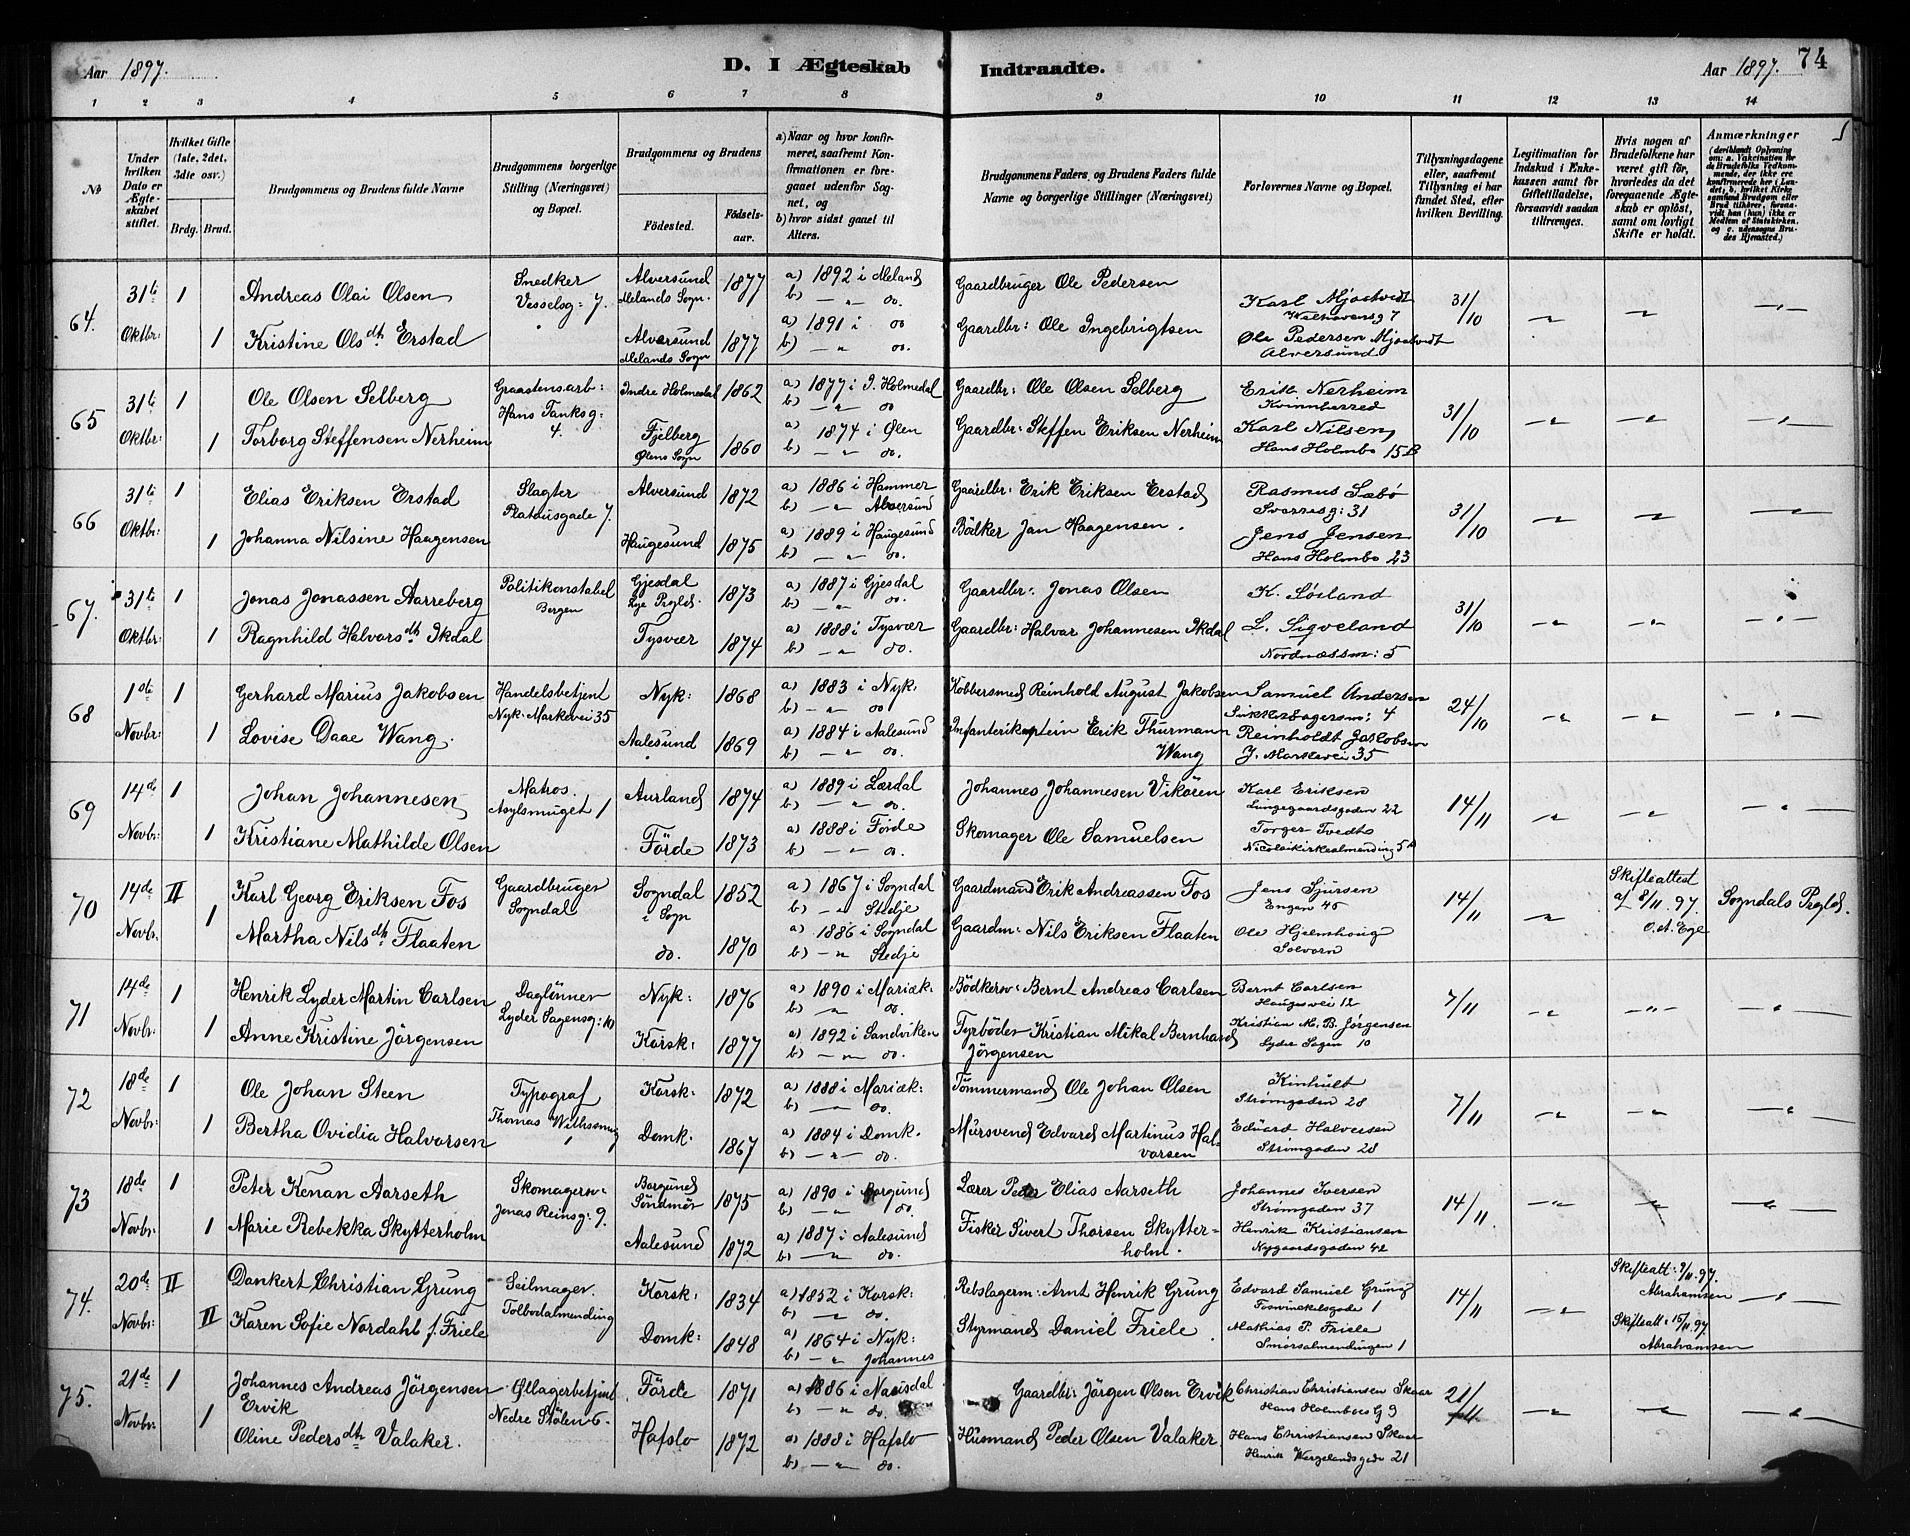 Aar 1897. D. I Ægteskab Indtraadte. Aar 1897. 74
1 2 3 4 5 6 7 8 9 10 11 12 13 14
№ | Under hvilken Dato er Ægteskabet stiftet. | Hvilket Gifte (1ste, 2det, 3die osv.) Brdg. Brud. | Brudgommens og Brudens fulde Navne | Brudgommens borgerlige Stilling (Næringsvei) og Bopæl. | Brudgommens og Brudens Fødested. Fødselsaar. | a) Naar og hvor konfirmeret, saafremt Konfirmationen er foregaaet udenfor Sognet, og b) hvor sidst gaaet til Alters. | Brudgommens Faders og Brudens Faders fulde Navne og borgerlige Stillinger (Næringsvei) | Forlovernes Navne og Bopæl. | Tillysningsdagene eller, saafremt Tillysning ei har fundet Sted, efter hvilken Bevilling. | Legitimation for Indskud i Enkekassen samt for Giftetilladelse, forsaavidt saadan tiltrænges. | Hvis nogen af Brudefolkene har været gift før, hvorledes da det foregaaende Ægteskab er opløst, samt om lovligt Skifte er holdt. | Anmærkninger (deriblandt Oplysning om: a. Vakcination for de Brudefolks Vedkommende, der ikke ere konfirmerede her i Landet; b. hvilket Kirkesamfund Brudgom eller Brud tilhører, forsaavidt han (hun) ikke er Medlem af Statskirken, og c. udensogns Brudes Hjemsted.)
64. 31te Oktbr: 1 Andreas Olai Olsen Snedker Vesselsg: 7. Alversund Melands Sogn. 1877 a) 1892 i Meland b) — " do. Gaardbruger Ole Pedersen Karl Mjøatvedt Welhavensg 7 31/10
1 Kristine Olsdtr Erstad Alversund Melands Sogn 1877 a) 1891 i do b) — " do. Gaardbr: Ole Ingebrigtsen Ole Pedersen Mjøatvedt Alversund
65 31te Oktbr: 1 Ole Olsen Selberg Graastensarb: Hans Tanksg: 4. Indre Holmedal 1862 a) 1877 i I. Holmedal b) — " do Gaardbr: Ole Olsen Selberg Erik Nerheim Kvinnherred 31/10
1 Torborg Steffensen Nerheim Fjelberg Ølens Sogn 1860 a) 1874 i Ølen b) — " do. Gaardbr: Steffen Eriksen Nerheim Karl Nilsen Hans Holmbo 15 B
66 31te Oktbr: 1 Elias Eriksen Erstad Slagter Platousgade 7. Alversund 1872 a) 1886 i Hammer b) — " Alversund Gaardbr: Erik Eriksen Erstad Rasmus Sæbø Sverresg: 31 31/10
1 Johanna Nilsine Haagensen Haugesund 1875 a) 1889 i Haugesund b) — " do. Bödker Jan Haagensen. Jens Jensen Hans Holmbo 23
67. 31te Oktbr: 1 Jonas Jonassen Aarreberg Politikonstabel Bergen Gjesdal Lye Prgld. 1873 a) 1887 i Gjesdal b) — " do. Gaardbr: Jonas Olsen K. Sörland 31/10
1 Ragnhild Halvorsdtr Ikdal Tysvær 1874 a) 1888 i Tysvær b) — " do. Gaardbr: Halvar Johannesen Ikdal L. Sigveland Nordnæssm: 5
68 1ste Novbr: 1 Gerhard Marius Jakobsen Handelsbetjent Nyk: Markevei 35 Nyk: 1868 a) 1883 i Nyk: b) — " do Kobbersmed Reinhold August Jakobsen Samuel Andersen Sukkerhagersm: 4 24/10
1 Lovise Daae Wang. Aalesund 1869 a) 1884 i Aalesund b) — " do. Infanterikaptein Erik Thurmann Wang Reinholdt Jakobsen J. Markevei 35
69 14de Novbr: 1 Johan Johannesen Matros. Asylsmuget 1 Aurland 1874 a) 1889 i Lærdal b) — " do. Johannes Johannesen Vikören Karl Eriksen Lungegaardsgaden 22 14/11
1 Kristiane Mathilde Olsen Förde 1873 a) 1888 i Förde b) — " do. Skomager Ole Samuelsen Torger Tvedt Nicolaikirkealmending 5 B
70 14de Novbr: II Karl Georg Eriksen Fos Gaardbruger Sogndal Sogndal i Sogn 1852 a) 1867 i Sogndal b) — " Stedje Gaardmand Erik Andreassen Fos Jens Sjursen Engen 45 14/11 Skifteattest af 8/11. 97. O. A. Ege Sogndals Prgld.
1 Martha Nilsdtr Flaaten do. 1870 a) 1886 i Sogndal b) — " Stedje Gaardm: Nils Eriksen Flaaten Ole Hjelmhoug Solvorn
71 14de Novbr: 1 Henrik Lyder Martin Carlsen Daglönner Lyder Sagensg: 10 Nyk: 1876 a) 1890 i Mariæk: b) — " do. Bödkersv: Bernt Andreas Carlsen Bernt Carlsen Haugevei 12 7/11
1 Anne Kristine Jörgensen Korsk: 1877 a) 1892 i Sandviken b) — " do. Fyrböder Kristian Mikal Bernhard Jörgensen Kristian M. B. Jørgensen Lyder Sagen 10
72 18de Novbr: 1 Ole Johan Steen Typograf Thomas Withsmug 1 Korsk: 1872 a) 1888 i Mariæk: b) — " do. Tømmermand Ole Johan Olsen Kinhult Strømgaden 28 7/11
1 Bertha Ovidia Halvorsen Domk: 1867 a) 1884 i Domk. b) — " do. Mursvend Edvard Martinus Halvorsen Eduard Halversen Strømgaden 28
73 18de Novbr: 1 Peter Kenan Aarseth Skomagersv: Jonas Reinsg: 9. Borgund Söndmör 1875 a) 1890 i Borgund b) — " do. Lærer Peder Elias Aarseth Johannes Iversen Strømgaden 37 14/11.
1 Marie Rebekka Skytterholm Aalesund 1872 a) 1887 i Aalesund b) — " do. Fisker Sivert Thorsen Skytterholm. Henrik Kristiansen Nygaardsgaden 42
74. 20de Novbr: II Dankert Christian Grung Seilmager. Tolbodalmending Korsk: 1834 a) 1852 i Korsk: b) — " do. Rebslagerm: Arnt Henrik Grung Edvard Samuel Grung Fosvinckelsgade 1 14/11 Skifteatt: 9/11. 97. Abrahamsen
II Karen Sofie Nordahl f. Friele Domk: 1848 a) 1864 i Nyk: b) — " Johannes Styrmand Daniel Friele. Mathias P. Friele Smørsalmendingen 1 Skifteatt: 15/11. 97. Abrahamsen
75. 21de Novbr: 1 Johannes Andreas Jörgensen Ervik Ollagerbetjent Nedre Stölen 6. Förde 1871 a) 1886 i Naustdal b) — " do. Gaardbr: Jörgen Olsen Ervik Christian Christiansen Skaar Hans Holmboes G 9 21/11
1 Oline Pedersdtr Valaker. Hafslo 1872 a) 1888 i Hafslo b) — " do. Husmand Peder Olsen Valaker Hans Christiansen Skaar Henrik Wergelands gade 21